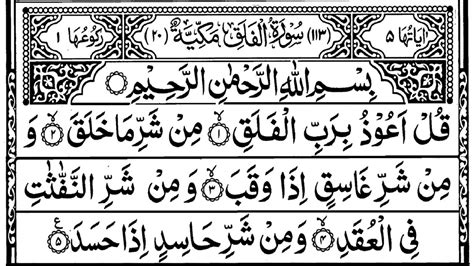 اٰیَاتُهَا ۵ (۱۱۳) سُوْرَةُ الْفَلَقِ مَكِّيَّةٌ (۲۰) رُكُوْعُهَا ۱
بِسْمِ اللهِ الرَّحْمٰنِ الرَّحِيْمِ
قُلْ اَعُوْذُ بِرَبِّ الْفَلَقِ ۙ۱ مِنْ شَرِّ مَا خَلَقَ ۙ۲ وَ
مِنْ شَرِّ غَاسِقٍ اِذَا وَقَبَ ۙ۳ وَ مِنْ شَرِّ النَّفّٰثٰتِ
فِی الْعُقَدِ ۙ۴ وَ مِنْ شَرِّ حَاسِدٍ اِذَا حَسَدَ ۵ ع